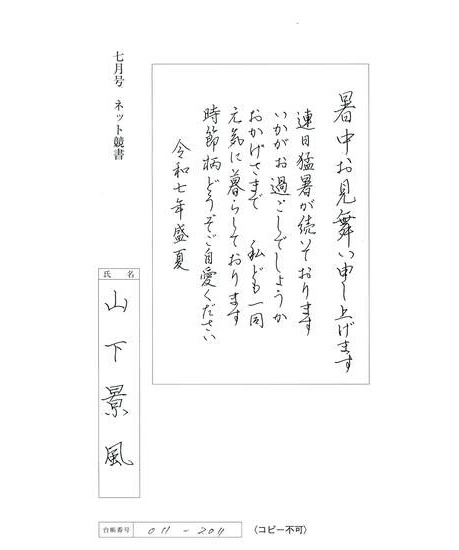 七月号 ネット競書
暑中お見舞い申し上げます
連日猛暑が続いております
いかがお過ごしでしょうか
おかげさまで 私ども一同
元気に暮らしております
時節柄どうぞご自愛ください
令和七年盛夏
氏名
山下景風
台帳番号
011-2011
(コピー不可)